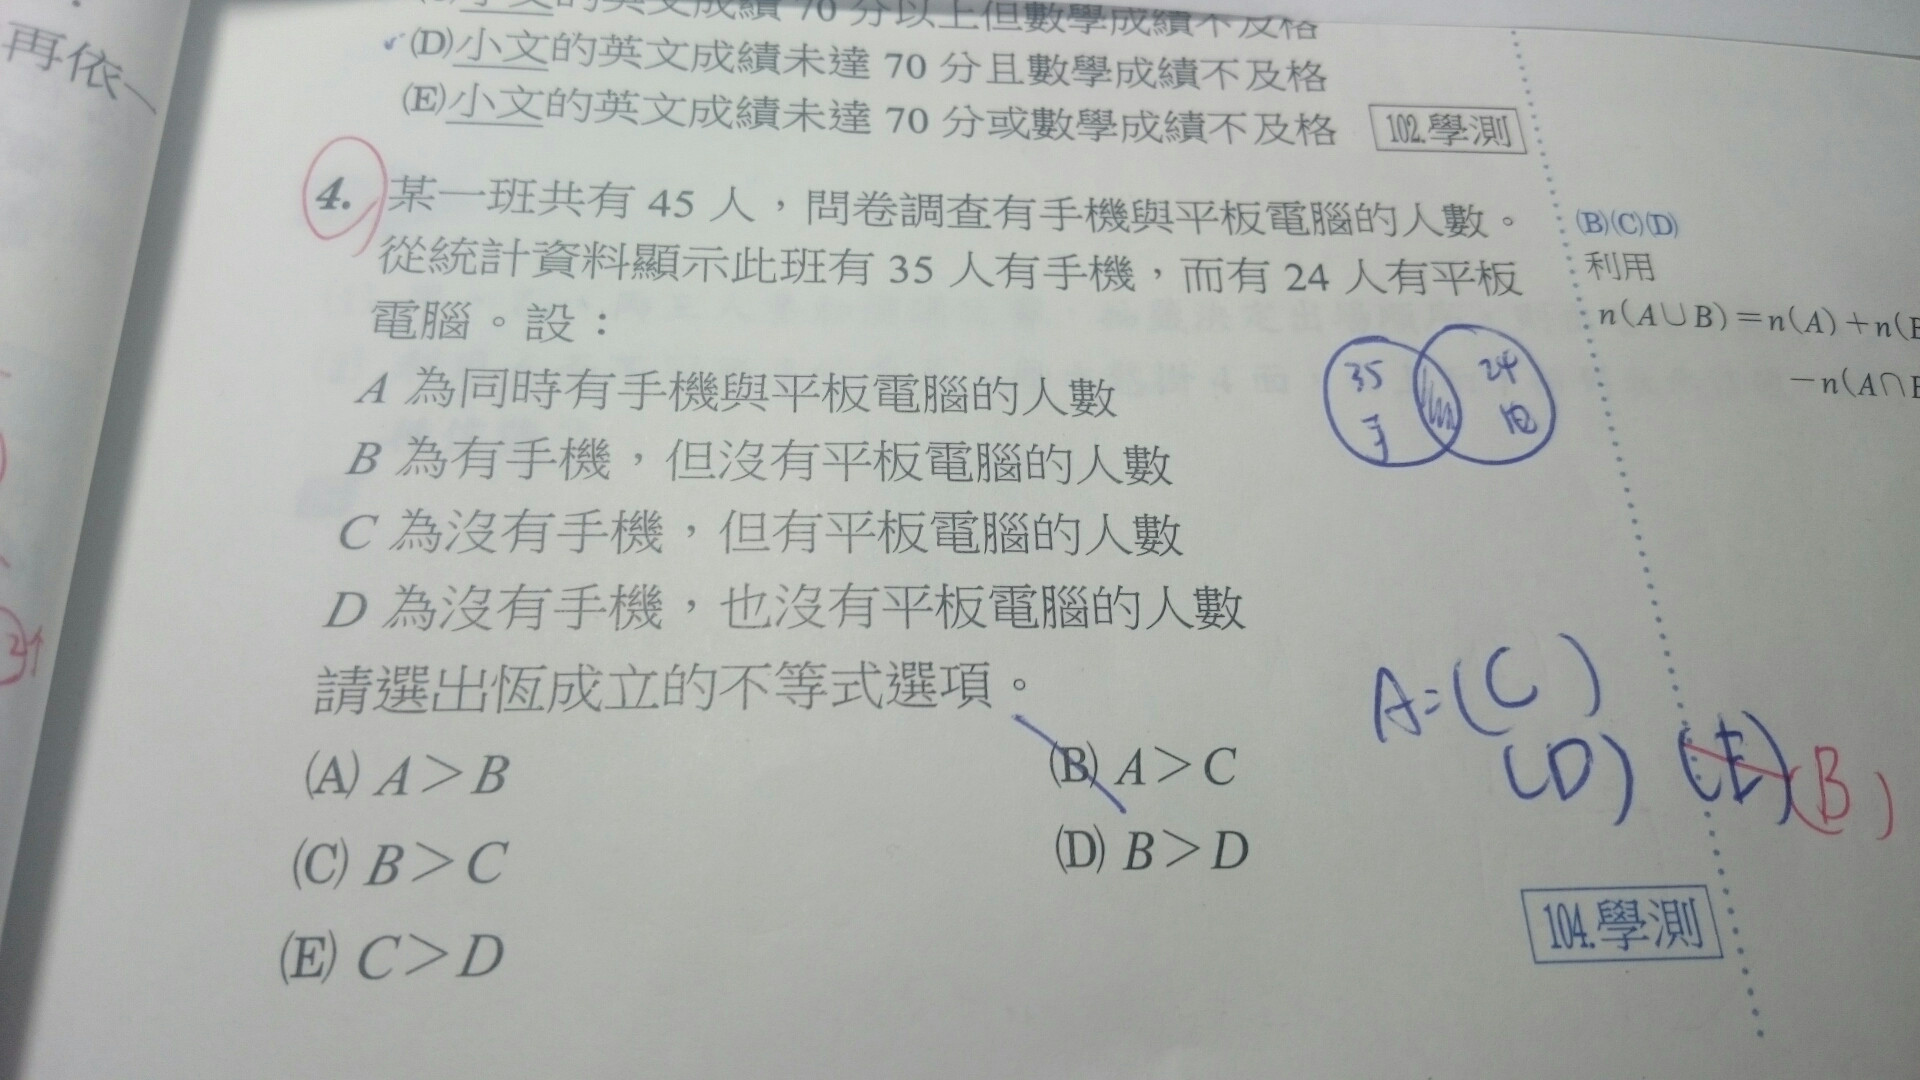 再依一
70 分以上但數學成績不及格
(D)小文的英文成績未達 70 分且數學成績不及格
(E)小文的英文成績未達 70 分或數學成績不及格 102.學測
4. 某一班共有 45 人，問卷調查有手機與平板電腦的人數。
從統計資料顯示此班有 35 人有手機，而有 24 人有平板
電腦。設：
A 為同時有手機與平板電腦的人數
B 為有手機，但沒有平板電腦的人數
C 為沒有手機，但有平板電腦的人數
D 為沒有手機，也沒有平板電腦的人數
請選出恆成立的不等式選項。
(A) A＞B
(B) A＞C
(C) B＞C
(D) B＞D
(E) C＞D
104.學測
(B)(C)(D)
利用
n(A∪B)＝n(A)＋n(B
－n(A∩B
35
手
24
A=(C)
(D) (E) (B)